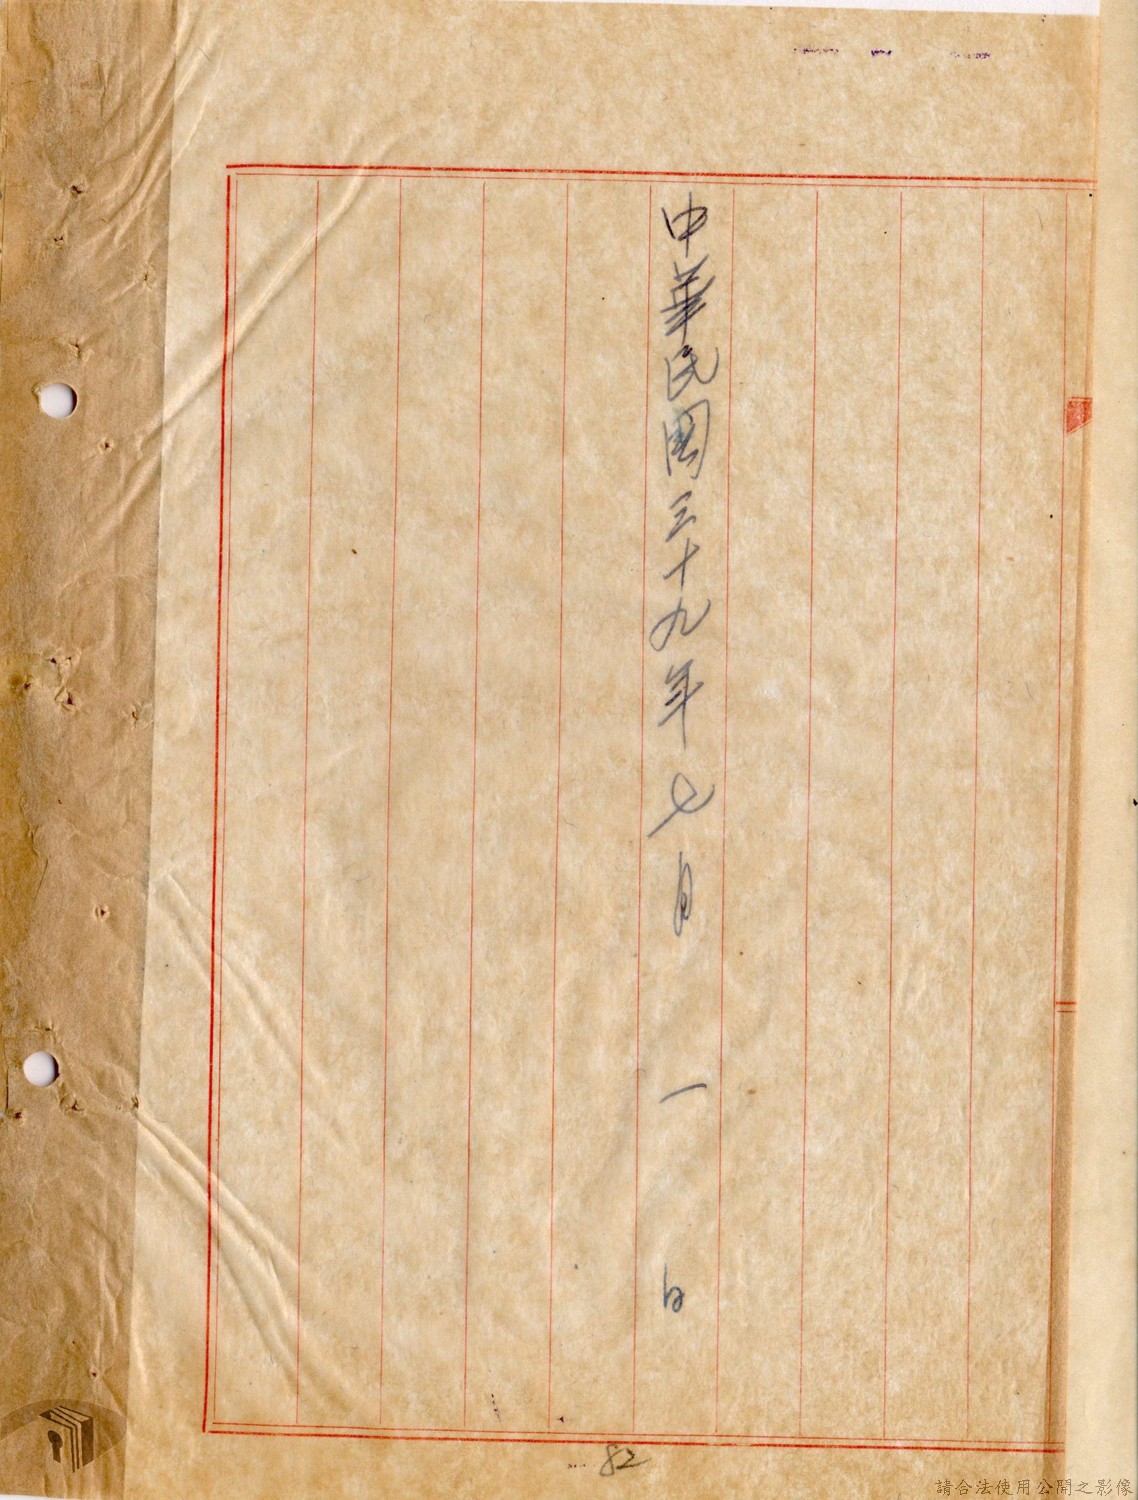 中華民國三十九年七月一日
82
請合法使用公開之影像